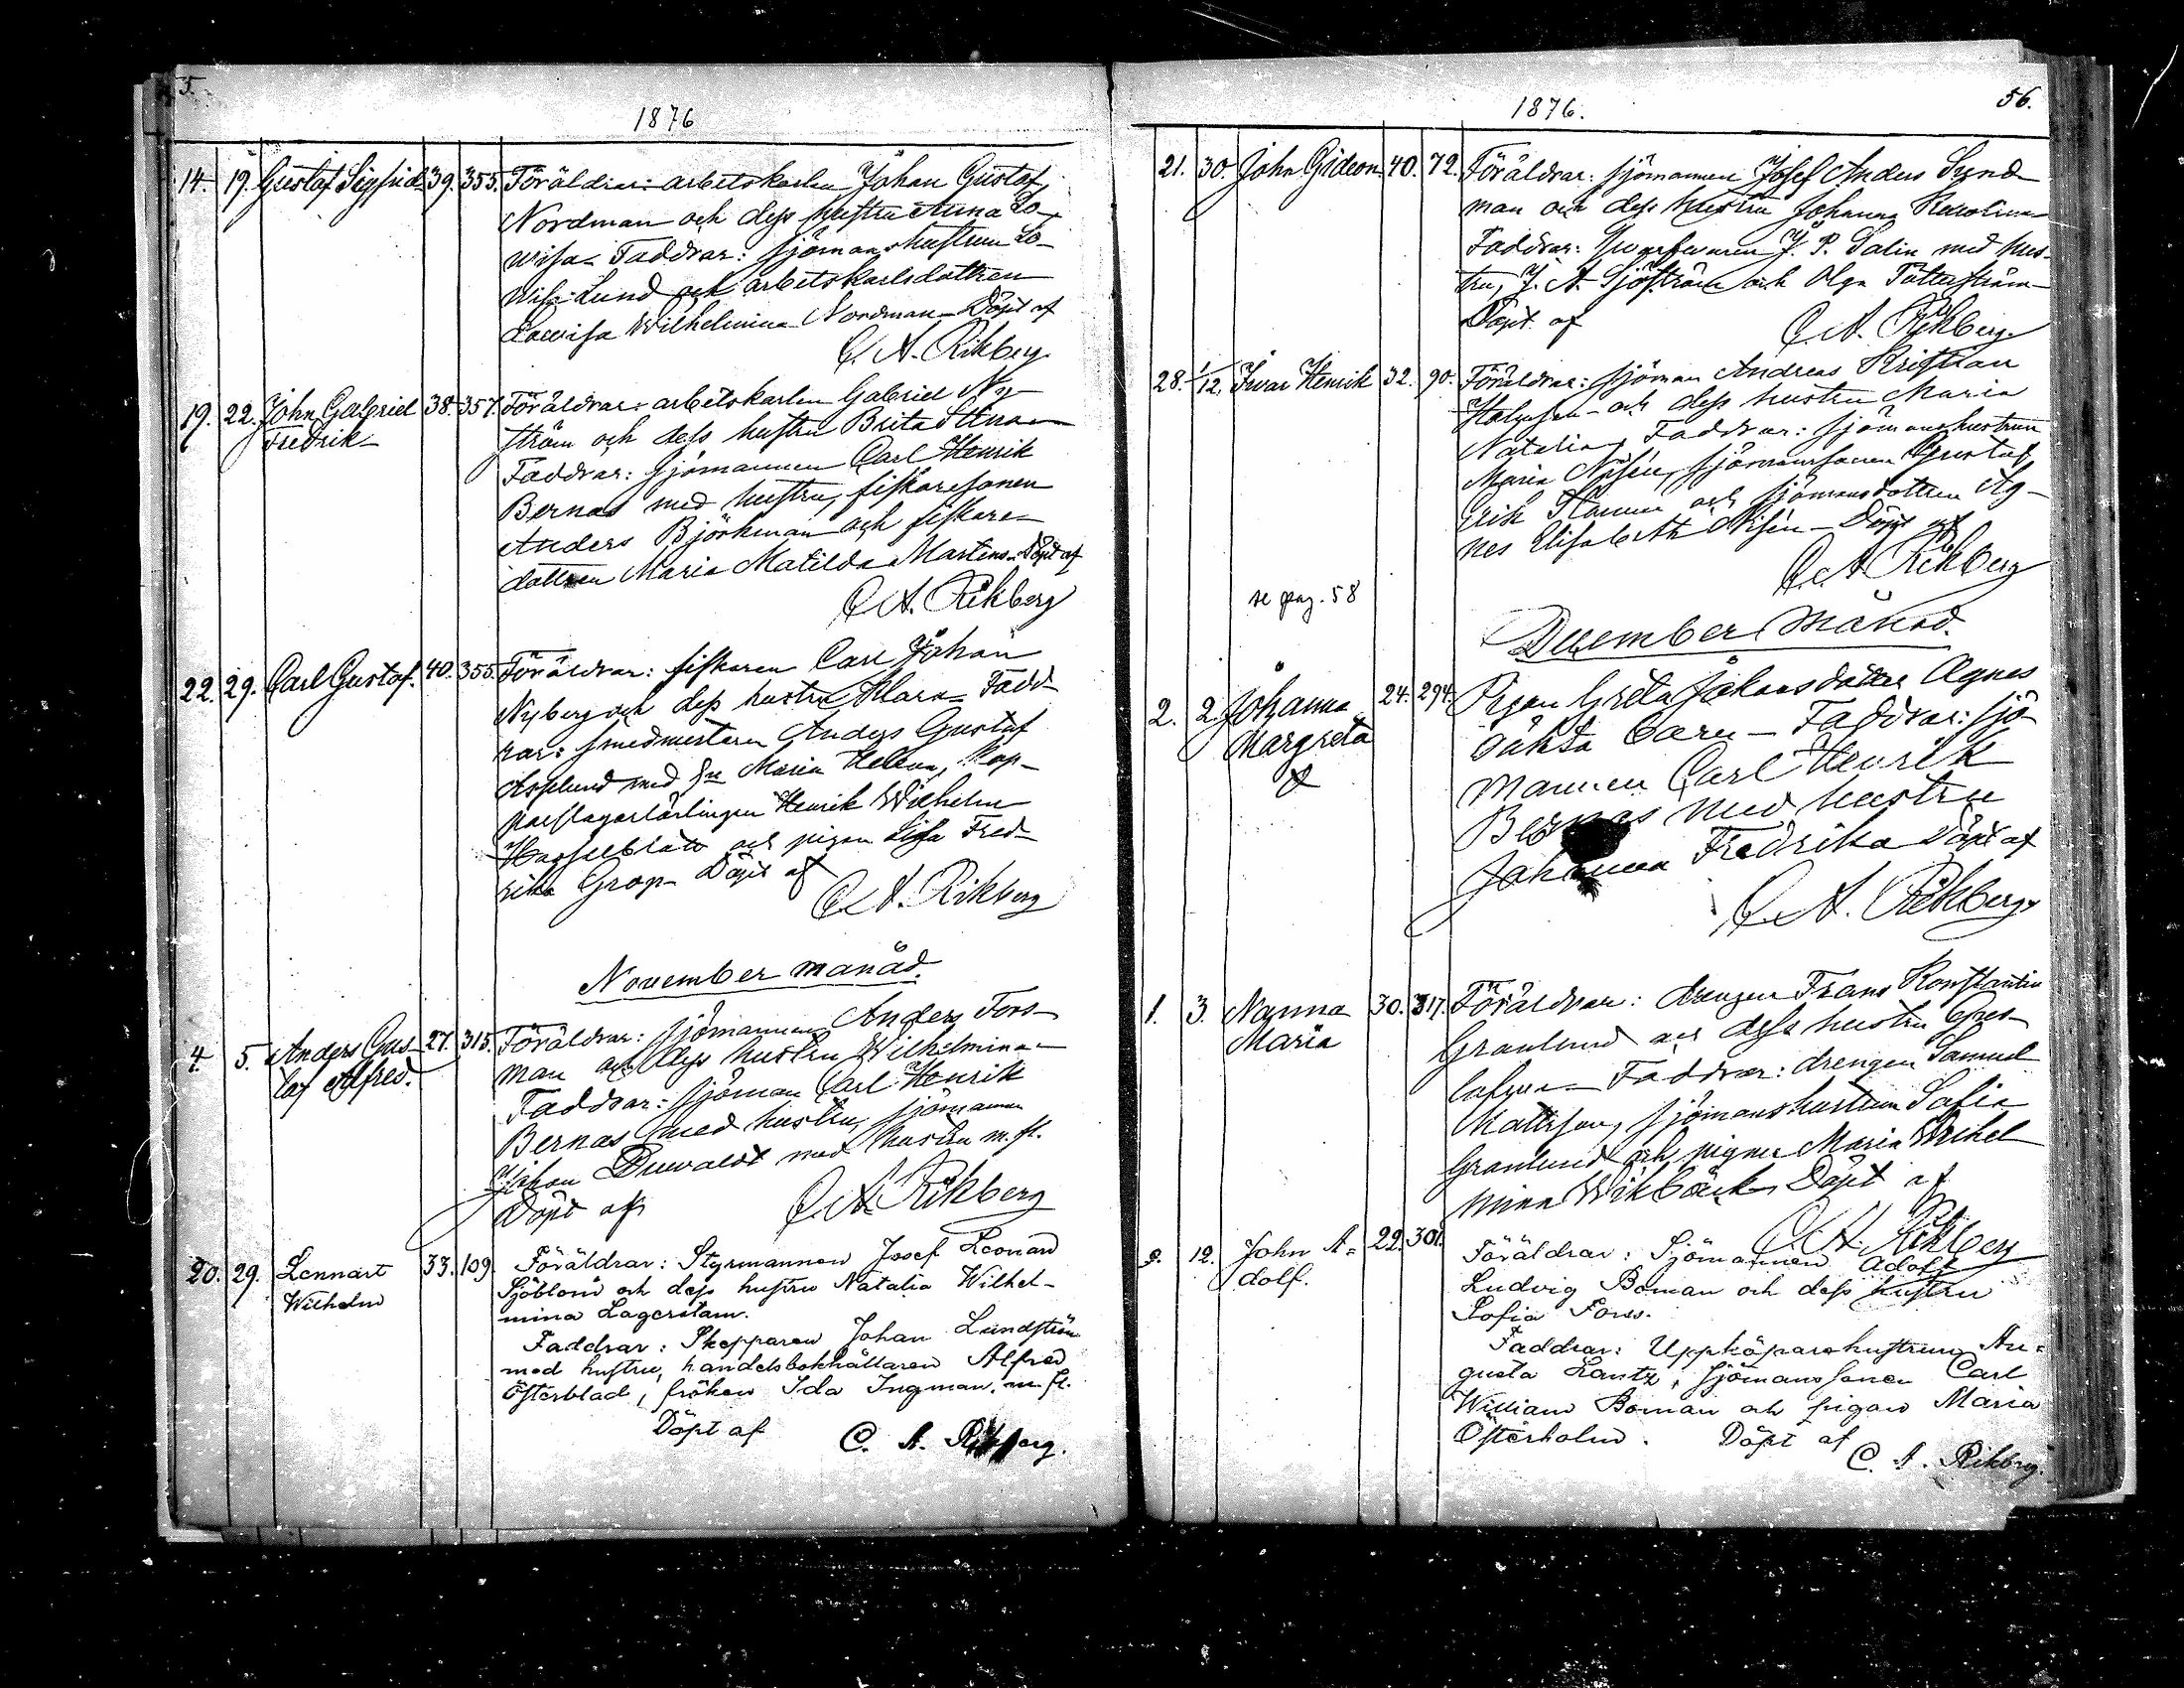 5.
1876
14. 19. Gustaf Sigfrid 39. 355. Föräldrar: arbetskarlen Johan Gustaf
Nordman och dess hustru Anna Lo-
wisa. Faddrar: sjömanshustrun Lo-
wisa Lund och arbetskarlsdottren
Lowisa Wilhelmina Nordman. Döpt af
C. A. Rikberg
19. 22. John Gabriel 38. 357. Föräldrar: arbetskarlen Gabriel Ny-
Fredrik ström och dess hustru Brita Stina
Faddrar: sjömannen Carl Henrik
Bernas med hustru, fiskaresonen
Anders Björkman och fiskare-
dottren Maria Matilda Martens. Döpt af
C. A. Rikberg
22. 29. Carl Gustaf. 40. 355. Föräldrar: fiskaren Carl Johan
Nyberg och dess hustru Klara. Fadd-
rar: smedmestaren Anders Gustaf
Asplund med fru Maria Helena, Kop-
parslagarlärlingen Henrik Wilhelm
Hasselblatt och pigan Lisa Fred-
rika Grop. Döpt af
C. A. Rikberg
November månad.
4. 5. Anders Gus- 27. 315. Föräldrar: sjömannen Anders Fors-
taf Alfred. man och dess hustru Wilhelmina
Faddrar: sjöman Carl Henrik
Bernas med hustru, sjömannen
Johan Duwaldt med hustru m. fl.
Döpt af C. A. Rikberg
20. 29. Lennart 33. 109. Föräldrar: Styrmannen Josef Leonard
Wilhelm Sjöblom och dess hustru Natalia Wilhel-
mina Lagerstam.
Faddrar: Skepparen Johan Lundström
med hustru, handelsbokhållaren Alfred
Österblad, fröken Ida Ingman. m. fl.
Döpt af C. A. Rikberg.
1876.
56.
21. 30. John Gideon 40. 72. Föräldrar: sjömannen Josef Anders Sund-
man och dess hustru Johanna Karolina
Faddrar: J. P. Salin med hus-
tru, J. A. Sjöström och Olga Tötterström
Döpt af C. A. Rikberg
28. 1/12. Iwar Henrik 32. 90. Föräldrar: sjöman Andreas Kristian
och dess hustru Maria
Natalia. Faddrar: sjömanshustrun
Maria Nisén, sjömanssonen Gustaf
Erik och sjömansdottren Ag-
nes Elisabeth Nisén. Döpt af
C. A. Rikberg
se pag. 58
December månad.
2. 2. Johanna 24. 294. Pigan Greta Johansdotter Agnes
Margreta oäkta barn. Faddrar: sjö-
mannen Carl Henrik
Bernas med hustru
Johanna Fredrika Döpt af
C. A. Rikberg
1. 3. Nanna 30. 317. Föräldrar: drengen Frans Konstantin
Maria Granlund och dess hustru Gus-
tafva. Faddrar: drengen Samuel
Mattsson, sjömanshustrun Sofia
Granlund och pigan Maria Wilhel
mina Wikbäck. Döpt af
C. A. Rikberg
9. 12. John A= 22. 301. Föräldrar: Sjömannen Adolf
dolf. Ludvig Boman och dess hustru
Sofia Forss.
Faddrar: Uppköparehustrun Au=
gusta Lantz, sjömanssonen Carl
William Boman och pigan Maria
Österholm. Döpt af
C. A. Rikberg.